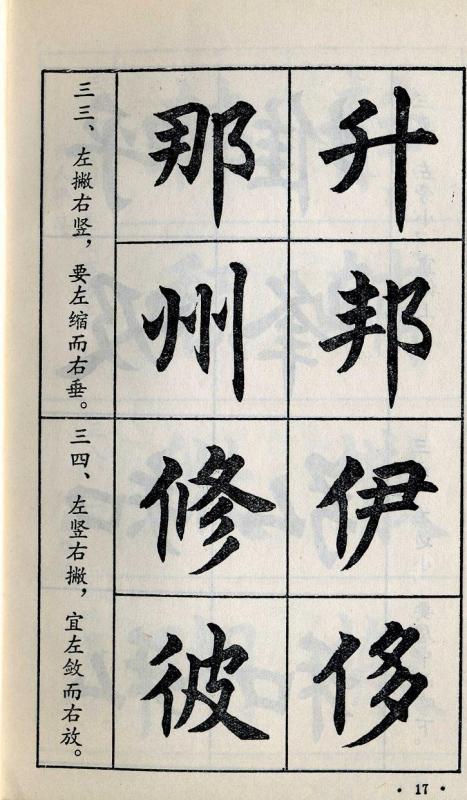 三三、左撇右竖，要左缩而右垂。
那升
州邦
三四、左竖右撇，宜左敛而右放。
修伊
彼侈
·17·